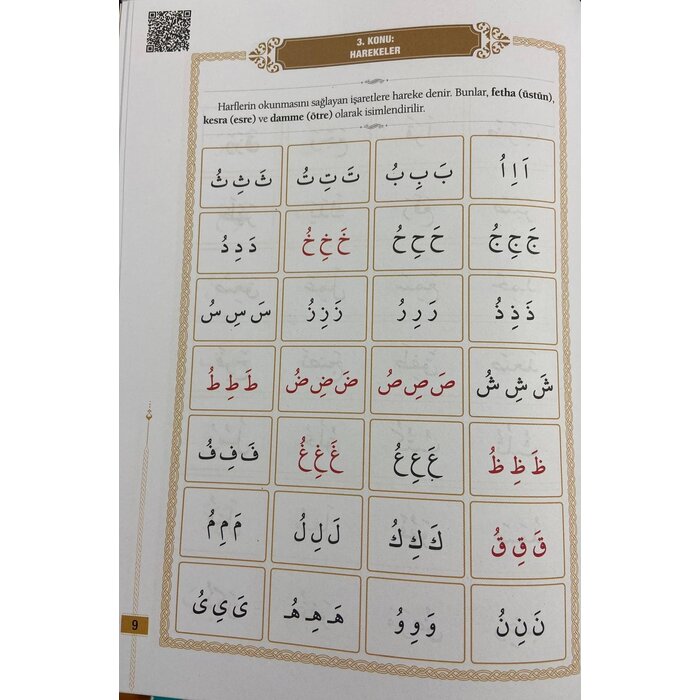 3. KONU:
HAREKELER
Harflerin okunmasını sağlayan işaretlere hareke denir. Bunlar, fetha (üstün),
kesra (esre) ve damme (ötre) olarak isimlendirilir.
اَ اِ اُ
بَ بِ بُ
تَ تِ تُ
ثَ ثِ ثُ
جَ جِ جُ
حَ حِ حُ
خَ خِ خُ
دَ دِ دُ
ذَ ذِ ذُ
رَ رِ رُ
زَ زِ زُ
سَ سِ سُ
شَ شِ شُ
صَ صِ صُ
ضَ ضِ ضُ
طَ طِ طُ
ظَ ظِ ظُ
عَ عِ عُ
غَ غِ غُ
فَ فِ فُ
قَ قِ قُ
كَ كِ كُ
لَ لِ لُ
مَ مِ مُ
نَ نِ نُ
وَ وِ وُ
هَـ هِـ هُـ
یَ یِ یُ
9